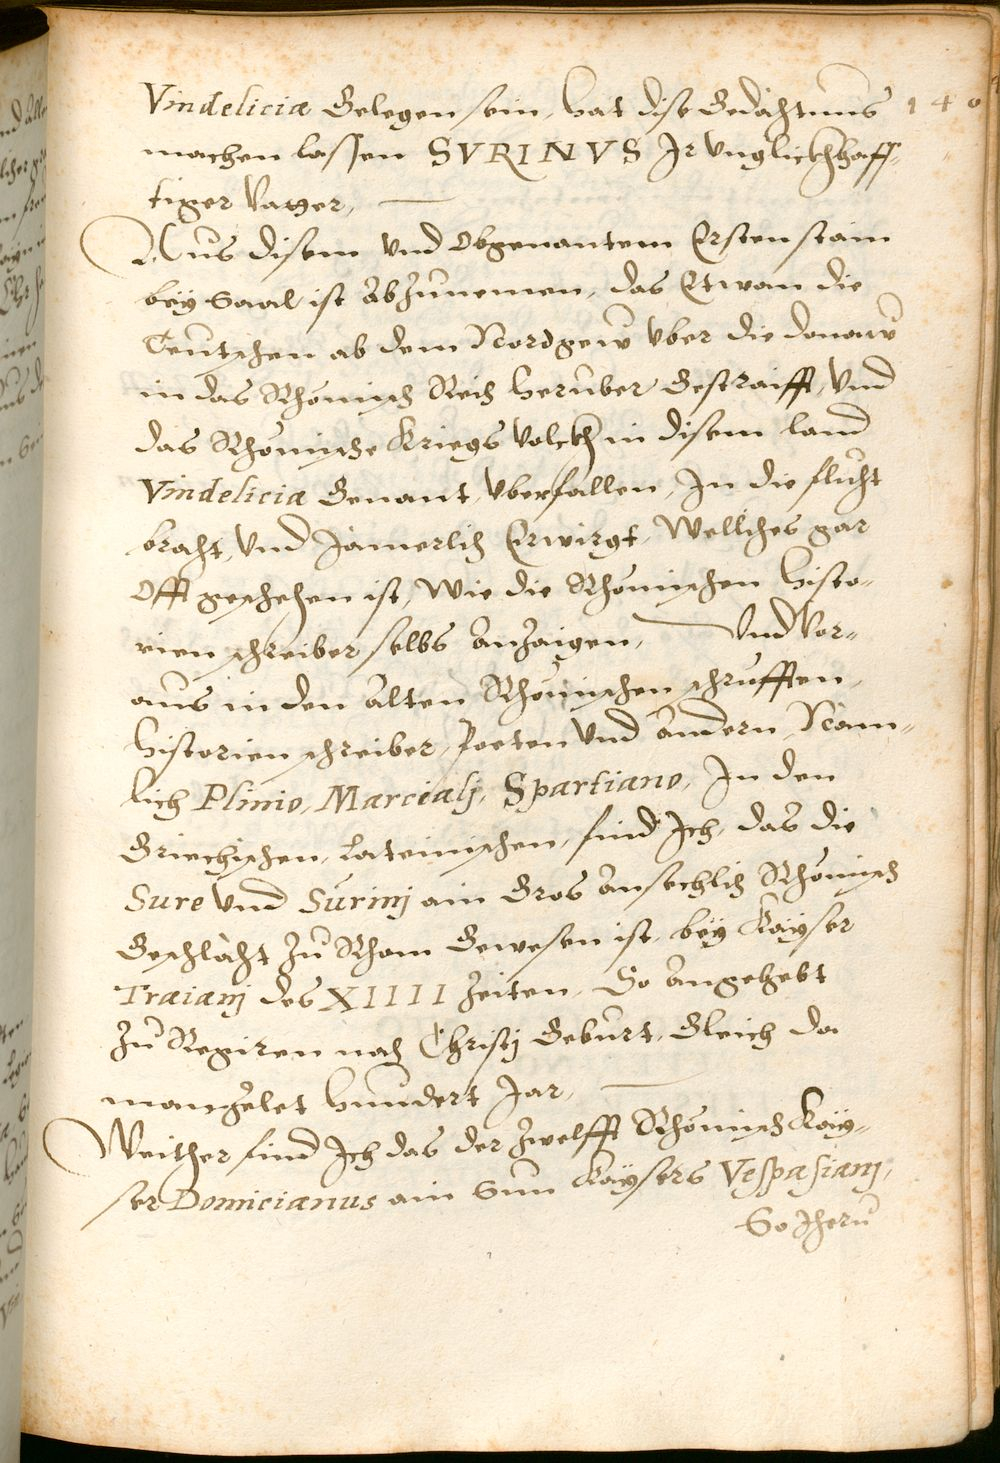 Vindelicia Gelegen sein, hat dise Gedächtnus 140
machen lassen SVRINVS Ir Vnglickhhaff-
tiger Vatter,
Aus disem vnd Obgenantem Ersten stain
bey Saal ist Abzunemen, das Etwan die
Teutschen ab dem Nordgew vber die donaw
in das Rhömisch Reich herüber Gestraifft, vnd
das Rhömische Kriegs volckh in disem land
Vindelicia Genant, vberfallen, In die flucht
bracht, vnd Jamerlich Erwirgt, Wellches gar
Offt geschehen ist, Wie die Rhömischen histo-
rien schreiber selbs Anzaigen, Vnd Vor-
aus in den Alten Rhömischen schrufften,
historien schreiber, Poeten vnd Andern, Nam-
lich Plinio, Marcialj, Spartiano, In den
Griechischen, Lateinischen, find Ich, das die
Sure vnd Surinj ain Gros Ansechlich Rhömisch
Geschlächt zu Rhom Gewesen ist, bey Kayser
Traianj des XIIII zeiten, So Angehebt
zu Regiren nach Christj Geburt, Gleich da
mangelet hundert Jar,
Weither find Ich das der zwelfft Rhömisch Kay-
ser Domicianus ain Sun Kaysers Vespasianj,
So Iheru